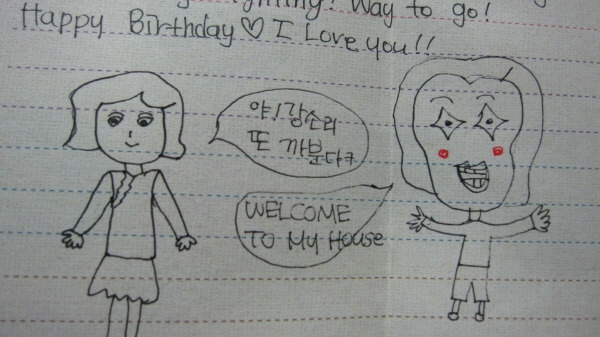 Way to go!
Happy Birthday♡ I Love you!!
야! 강소리
또 까분다ㅋ
WELCOME
TO My House